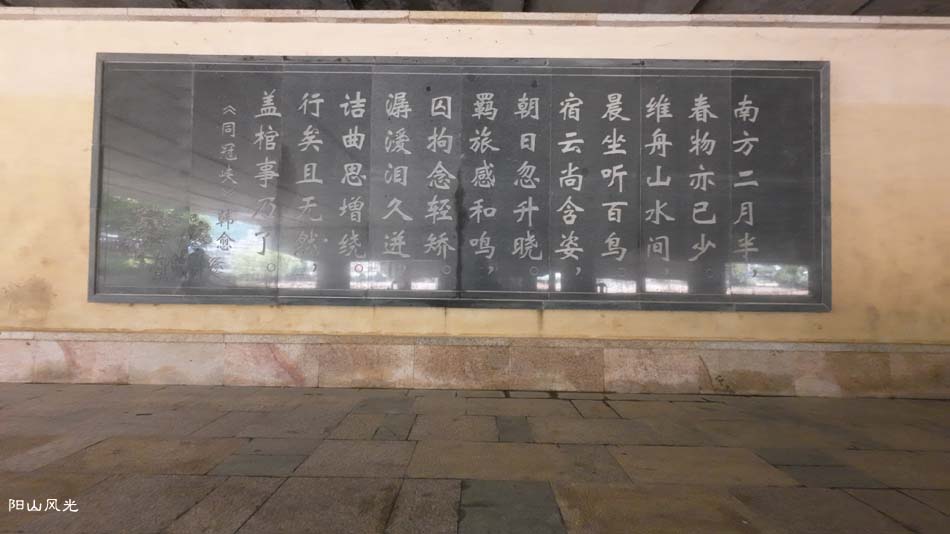 南方二月半，
春物亦已少。
维舟山水间，
晨坐听百鸟。
宿云尚含姿，
朝日忽升晓。
羁旅感和鸣，
囚拘念轻矫。
潺湲泪久迸，
诘曲思增绕。
行矣且无然，
盖棺事乃了。
《同冠峡》韩愈
阳山风光